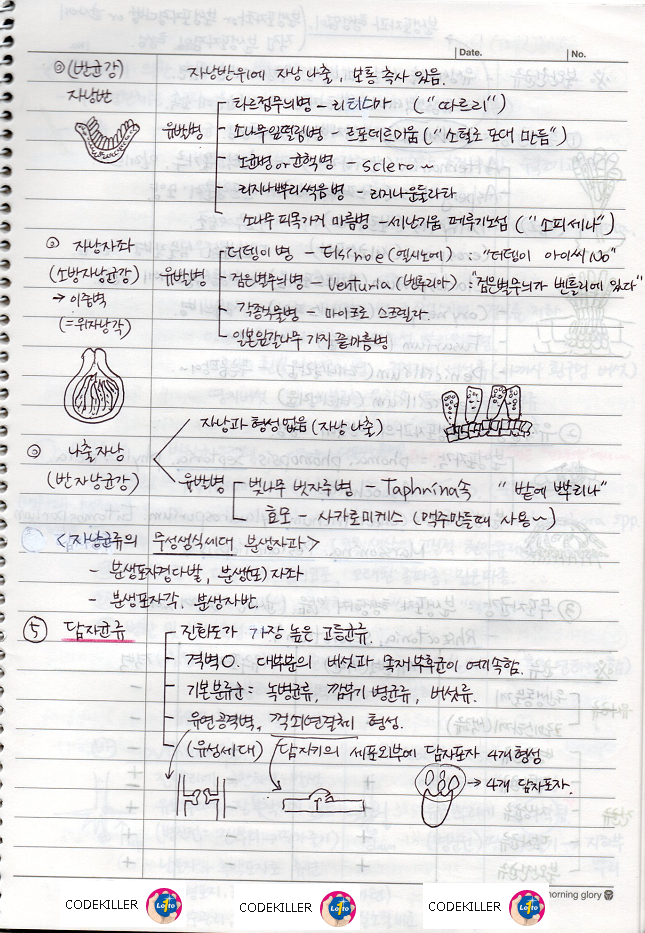 Date.
No.
⊙(반균강) 자낭반위에 자낭 나출, 보통 측사 있음.
자낭반
유발병
타르점무늬병 - 리티스마 ("따르리")
소나무잎떨림병 - 로포데르미움 ("소혈로 포대 만듦")
노균병 or 균핵병 - Sclero~
리지나뿌리썩음병 - 리지나운둘라타
소나무 피목가지 마름병 - 세난기움 페루기노섬 ("소피세나")
② 자낭자좌
(소방자낭균강)
→ 이중벽
(=위자낭각)
유발병
더뎅이병 - Elsinoe (엘시노에) : "더뎅이 아이씨 No"
검은별무늬병 - Venturia (벤투리아) : "검은별무늬가 벤틀리에 있다"
각종식물병 - 마이크로 스프렐라.
일본잎갈나무 가지 끝마름병
자낭과 형성 없음 (자낭 나출)
⊙ 나출자낭
(반자낭균강)
유발병
벚나무 빗자루병 - Taphrina속 "밭에 뿌리나"
효모 - 사카로미케스 (맥주만들때 사용~)
<자낭균류의 무성생식세대 분생자과>
- 분생포자경다발, 분생(포)자좌
- 분생포자각, 분생자반.
⑤ 담자균류
진화도가 가장 높은 고등균류.
격벽O. 대부분의 버섯과 목재부후균이 여기속함.
기본분류군 = 녹병균류, 깜부기 병균류, 버섯류.
유연공격벽, 꺽쇠연결체 형성.
(유성세대) 담자기의 세포외부에 담자포자 4개 형성
→ 4개 담자포자.
morning glory
CODEKILLER Lotto CODEKILLER Lotto CODEKILLER Lotto